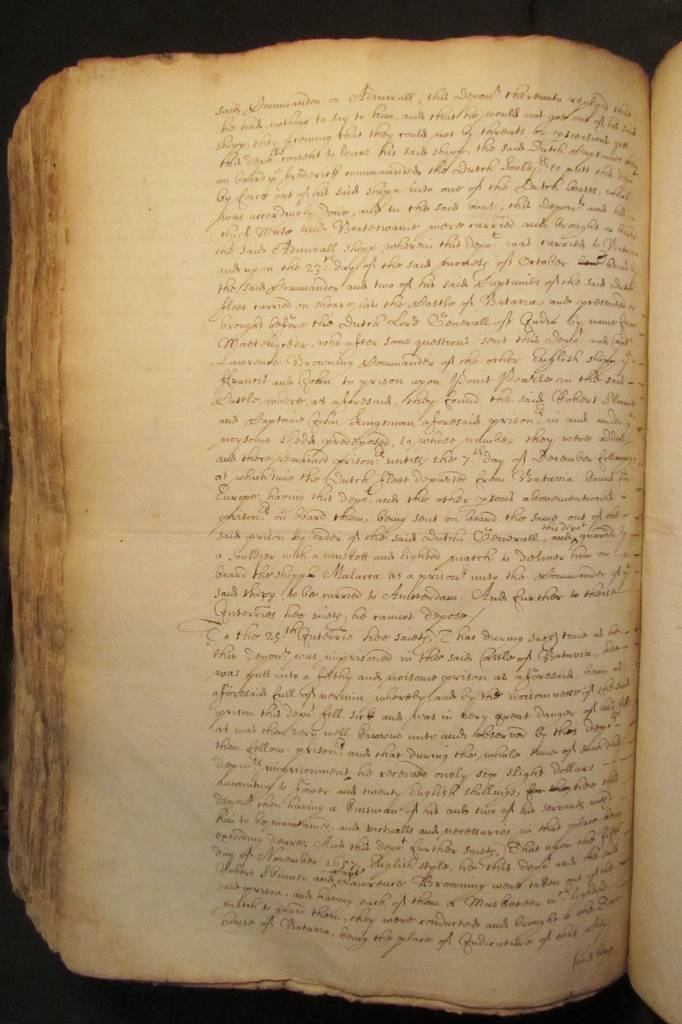 said Commander or Admirall, this depont thereunto replyed that
he had nothing to say to him, and that he would not goe out of his said
shipp, they knowing that they could not by threats or perswasions gett
this depots consent to leave his said shipp, the said Dutch Captaines
on board ye Frederick commanded the Dutch to putt this
by force out of his said shipp into one of the Dutch boates, which
was accordingly done, and in the said boat, this depont and his
chief Mate and Boateswaine were carried and brought on board
the said Admirall shipp, wherein this depot was carried to Batavia
and upon the 23th day of the said moneth of October
the said Commander and two of his said Captaines of the said Dutch
fleet carried on shoare, into the Castle of Batavia, and presented or
brought before the Dutch Lord Generall of India by name
Maetsuycker, who after some questions sent this depot and
Lawrence Browning Commander of the other English shipp ye
Francis and John to prison upon Point Pearle in the said
Castle, where as aforesaid, they found the said Robert
and Captaine John Kingsman aforesaid prisonrs in and under ye
noysome shedd predeposed, to whose number they were added
and there remained prisonrs untill the 7th day of December following
at which time the Dutch fleet departed from Batavia bound for
Europe, having this depot and the other persons abovementioned
prisonrs on board them, being sent on board the same out of the
said prison by order of the said Dutch Generall, and this depot guarded by
a souldier with a muskett and lighted match to deliver him on
board the shipp Malacca as a prisonr unto the Commander of ye
said shipp to be carried to Amsterdam. And further to these
Interries hee saieth, he cannot depose.
To the 25th Interrie hee saieth, That during such time as he
this deponent was imprisoned in the said Castle of Batavia, hee
was putt into a filthy and noisome prison as aforesaid, being as
aforesaid full of vermin whereby, and by the noisomness of the said
prison this depot fell sick and was in very great danger of his life
as was then very well knowne unto and observed by this depots
then fellow prisonrs and that during the whole time of such this
deponts imprisonment, he received onely six slight dollars
amounting to fower and twenty English shillings, hee this
depont then having a kinsman of his and two of his servants with
him to be maintained, and victualls and necessaries in that place being
exceeding deare. And this depot further saieth, That upon the
day of November 1657 English style, he this depot and the said
Robert and Capt Lawrence Browning were taken out of the
said prison, and having each of them a Musketeer wth lighted
match to guard them, they were conducted and brought to the
house of Batavia, being the place of Judicature of that